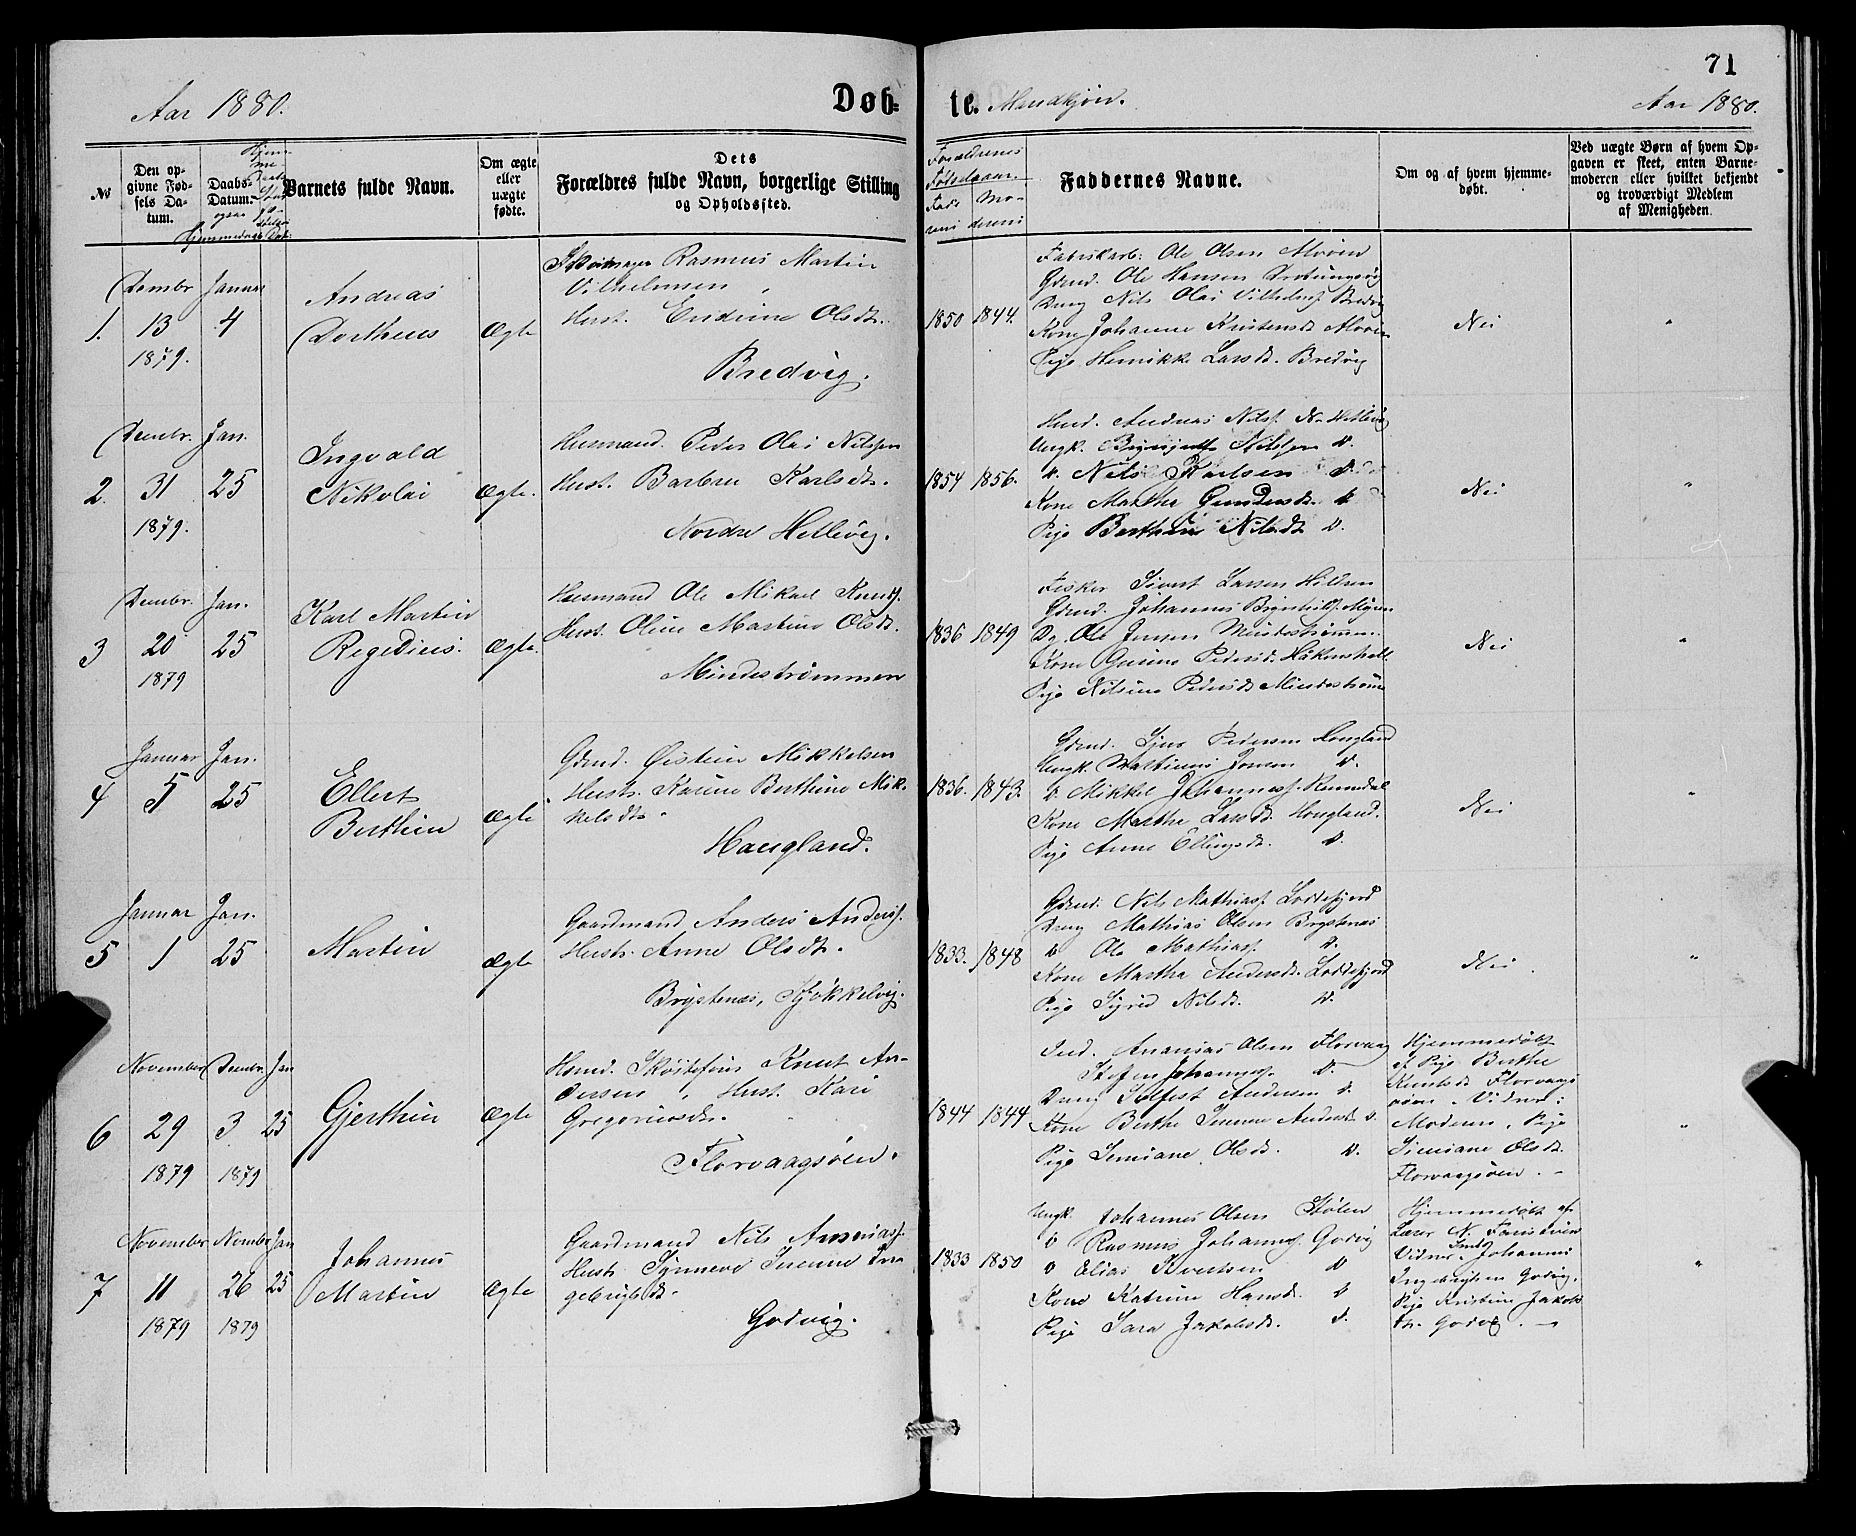 71
Aar 1880.
Døb-
te. Mandkjøn.
Aar 1880.
№
Den op-
givne Fød-
sels Da-
tum.
Daabs-
Datum.
Barnets fulde Navn.
Om ægte
eller
uægte
fødte.
Dets
Forældres fulde Navn, borgerlige Stilling
og Opholdssted.
Forældrenes
Fødselsaar.
Faddernes Navne.
Om og af hvem hjemme-
døbt.
Ved uægte Børn af hvem Op-
gaven er skeet, enten Barne-
moderen eller hvilket bekjendt
og troværdigt Medlem
af Menigheden.
1.
Decmbr
13
1879.
Januar
4
Andreas
Dortheus
Ægte
Rasmus Martin
Vilhelmsen,
Hust. Endrine Olsdt.
Bredvig.
1850 1844.
Fabrikarb: Ole Olsen Alvøen
Gdmd. Ole Hansen
Dreng Nils Olai Vilhelms. Bredvig
Kone Johanne Kristensdt Alvøen
Pige Henrikke Larsdt. Bredvig
Nei
"
2.
Decmbr.
31
1879.
Jan.
25
Ingvald
Nikolai
Ægte.
Husmand. Peder Olai Nilssen
Hust. Barbru Karlsdt.
Nordre Hellevig.
1854 1856.
Husmd. Andreas Nilss. N. Hellevig
Ungk. Nilssen D.
D. Nils Karlsen D.
Kone Martha Gundersdt. D
Pige Berthine Nilsdt D.
Nei
"
3
Decmbr.
20
1879
Jan.
25
Karl Martin
Regedius.
Ægte.
Husmand Ole Mikael Knuds.
Hust. Oline Martine Olsdt.
Mindestrømmen
1836 1849
Fisker Sivert Larsen Hilleren
Gdmd. Johannes Brynhilds.
Dg. Ole Jensen Mindestrømmen.
Kone Gurine Pedersdt. Håkonshell.
Pige Nilsine Pedersdt Mindestrømm
Nei
"
4
Januar
5
Jan.
25
Ellert
Berthin
Ægte
Gdmd. Øistein Mikkelsen
Hustr. Karine Berthine Mik-
kelsdt.
Haugland.
1836. 1843.
Gdmd. Sjur Pedersen Hougland
Ungk. Mathias Jonsen D.
D. Mikkel Johanness.
Kone Marthe Larsdt. Hougland.
Pige Anne Ellingsdt. D.
Nei
"
5
Januar
1
Jan.
25
Martin
Ægte
Gaardmand Anders Anderss.
Hustr. Anne Olsdt.
Brystenæs, Kjøkkelvig.
1833. 1848
Gdmd. Nils Mathiass. Loddefjord
Dreng Mathias Olsen Brystenæs
D Ole Mathiass. D.
Kone Martha Andersdt. Loddefjord
Pige Sigrid Nilsdt. D.
Nei.
"
6
November
29
1879
Decmbr.
3
1879
Jan
25
Gjerthin
Ægte
Husmd. Skøitefører Knut An-
dersen, Hust. Kari
Gregoriusdt.
Florvaagsøen.
1844 1844
Ananias Olsen Florvaag
Steffen Johanness. D.
Dreng Andersen D.
Kone Berthe Andersdt D.
Pige Semiane Olsdt. D.
Hjemmedøbt
af Pige Berthe
Knutsdt Florvaags
øen. Vidner:
Moderen, Pige
Simiane Olsdt.
Florvaagsøen.
"
7
November
11
1879
Novmbr
26
1879
Jan
25
Johannes
Martin
Ægte
Gaardmand Nils Ananiass.
Hustr. Synneve Inge-
gebrigtsdt.
Godvig.
1833 1850
Ungk. Johannes Olsen Stølen
D Rasmus Johanness. Godvig
D Elias Sivertsen D
Kone Katrine Hansdt. D
Pige Sara Jakobsdt. D.
Hjemmedøbt af
Lærer N.
Vidner: Johannes
Ingebrigtsen Godvig,
Pige Kristine Jakobs
dt. Godvig.
"